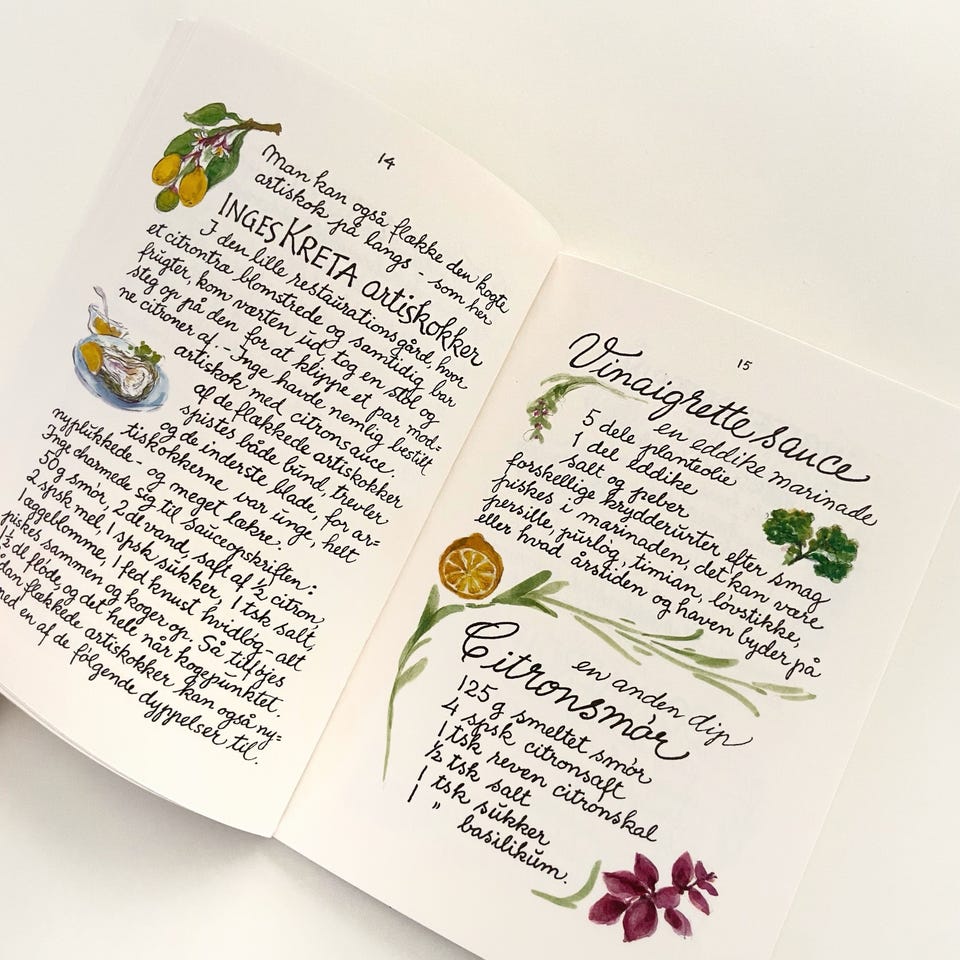 14
Man kan også flække den kogte
artiskok på langs - som her
INGES KRETA artiskokker
I den lille restaurationsgård, hvor
et citrontræ blomstrede og samtidig bar
frugter, kom værten ud, tog en stol og
steg op på den for at klippe et par mod=
ne citroner af. - Inge havde nemlig bestilt
artiskok med citronsauce.
af de flækkede artiskokker
spistes både bund, trevler
og de inderste blade, for ar=
tiskokkerne var unge, helt
nyplukkede - og meget lækre.
Inge charmede sig til sauceopskriften:
50g smør, 2 dl vand, saft af ½ citron,
2 spsk mel, 1 spsk sukker, 1 tsk salt,
1 æggeblomme, 1 fed knust hvidløg - alt
piskes sammen og koger op. Så tilføjes
1½ dl fløde, og det hele når kogepunktet.
dan flækkede artiskokker kan også ny=
med en af de følgende dyppelser til.
15
Vinaigrette sauce
en eddike marinade
5 dele planteolie
1 del eddike
salt og peber
forskellige krydderurter efter smag
piskes i marinaden, det kan være
persille, purløg, timian, løvstikke,
eller hvad årstiden og haven byder på
en anden dip
Citronsmør
125 g smeltet smør
4 spsk citronsaft
1 tsk reven citronskal
½ tsk salt
1 tsk sukker
1 " basilikum.